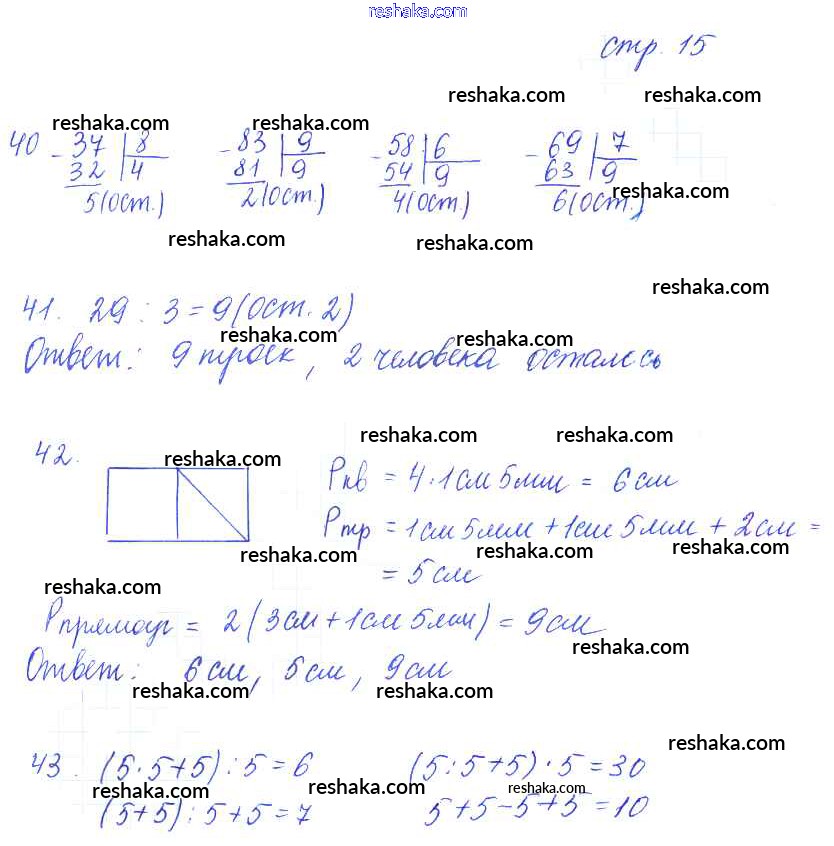 reshaka.com
стр. 15
reshaka.com reshaka.com
reshaka.com reshaka.com
40 - 37 | 8 - 83 | 9 - 58 | 6 - 69 | 7
32 | 4 81 | 9 54 | 9 63 | 9
reshaka.com
5(Ост.) 2(Ост.) 4(Ост.) 6(Ост.)
reshaka.com reshaka.com
reshaka.com
41. 29 : 3 = 9(Ост. 2)
reshaka.com reshaka.com
Ответ: 9 троек, 2 человека осталось
reshaka.com reshaka.com
42. reshaka.com
Pкв = 4·1см 5мм = 6см
Pтр = 1см 5мм + 1см 5мм + 2см =
reshaka.com reshaka.com reshaka.com
= 5см
reshaka.com
Pпрямоуг = 2(3см+1см 5мм) = 9см
reshaka.com
Ответ: 6см, 5см, 9см
reshaka.com reshaka.com
reshaka.com
43. (5·5+5):5=6 (5:5+5)·5=30
reshaka.com reshaka.com reshaka.com
(5+5):5+5=7 5+5-5+5=10